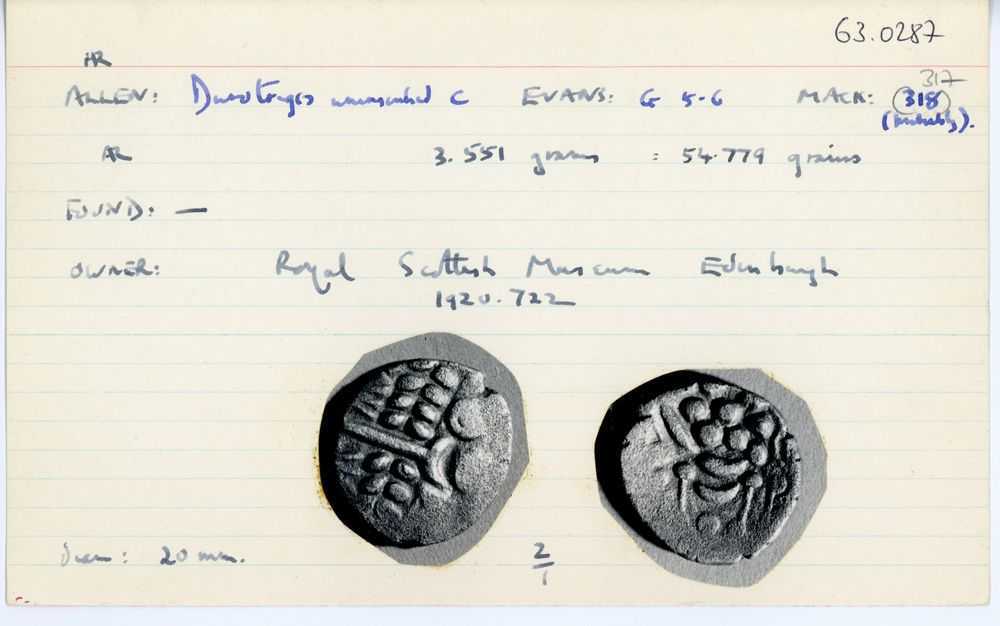 63.0287
AR
317
ALLEN: Durotriges uninscribed C EVANS: G 5-6 MACK: 318
(probably).
AR 3.551 grams = 54.779 grains
FOUND: —
OWNER: Royal Scottish Museum Edinburgh
1920.722
Diam: 20 mm. 2/1